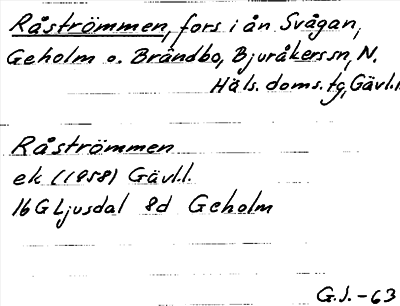 Råströmmen, fors i ån Svågan,
Geholm o. Brändbo, Bjuråkers sn, N.
Häls. doms. tg, Gävl.l.
Råströmmen
ek (1958) Gävl.l.
16G Ljusdal 8d Geholm
G.J. -63